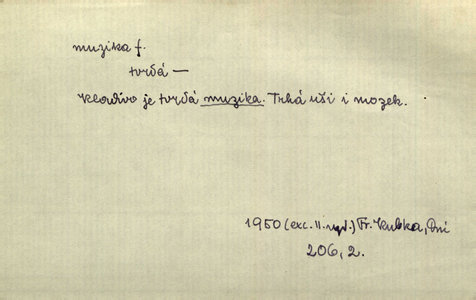 muzika f.
tvrdá —
Kladivo je tvrdá muzika. Trhá uši i mozek.
1950 (exc. II. vyd.) Fr. Kubka, Dni
206, 2.